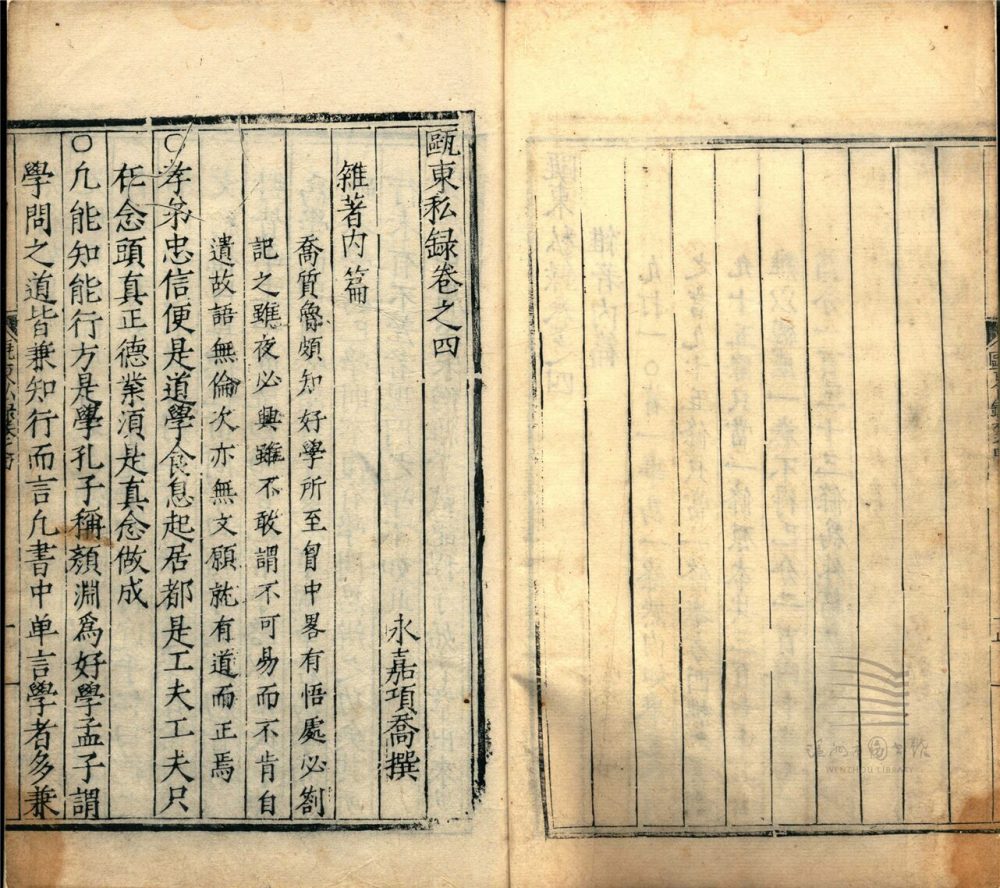 甌東私録卷之四
永嘉項喬撰
雜著内篇
喬質魯頗知好學所至胷中畧有悟處必劄
記之雖夜必興雖不敢謂不可易而不肯自
遺故語無倫次亦無文願就有道而正焉
○孝弟忠信便是道學食息起居都是工夫工夫只
在念頭真正德業須是真念做成
○凢能知能行方是學孔子稱顔淵爲好學孟子謂
學問之道皆兼知行而言凢書中单言學者多兼
WENZHOU LIBRARY